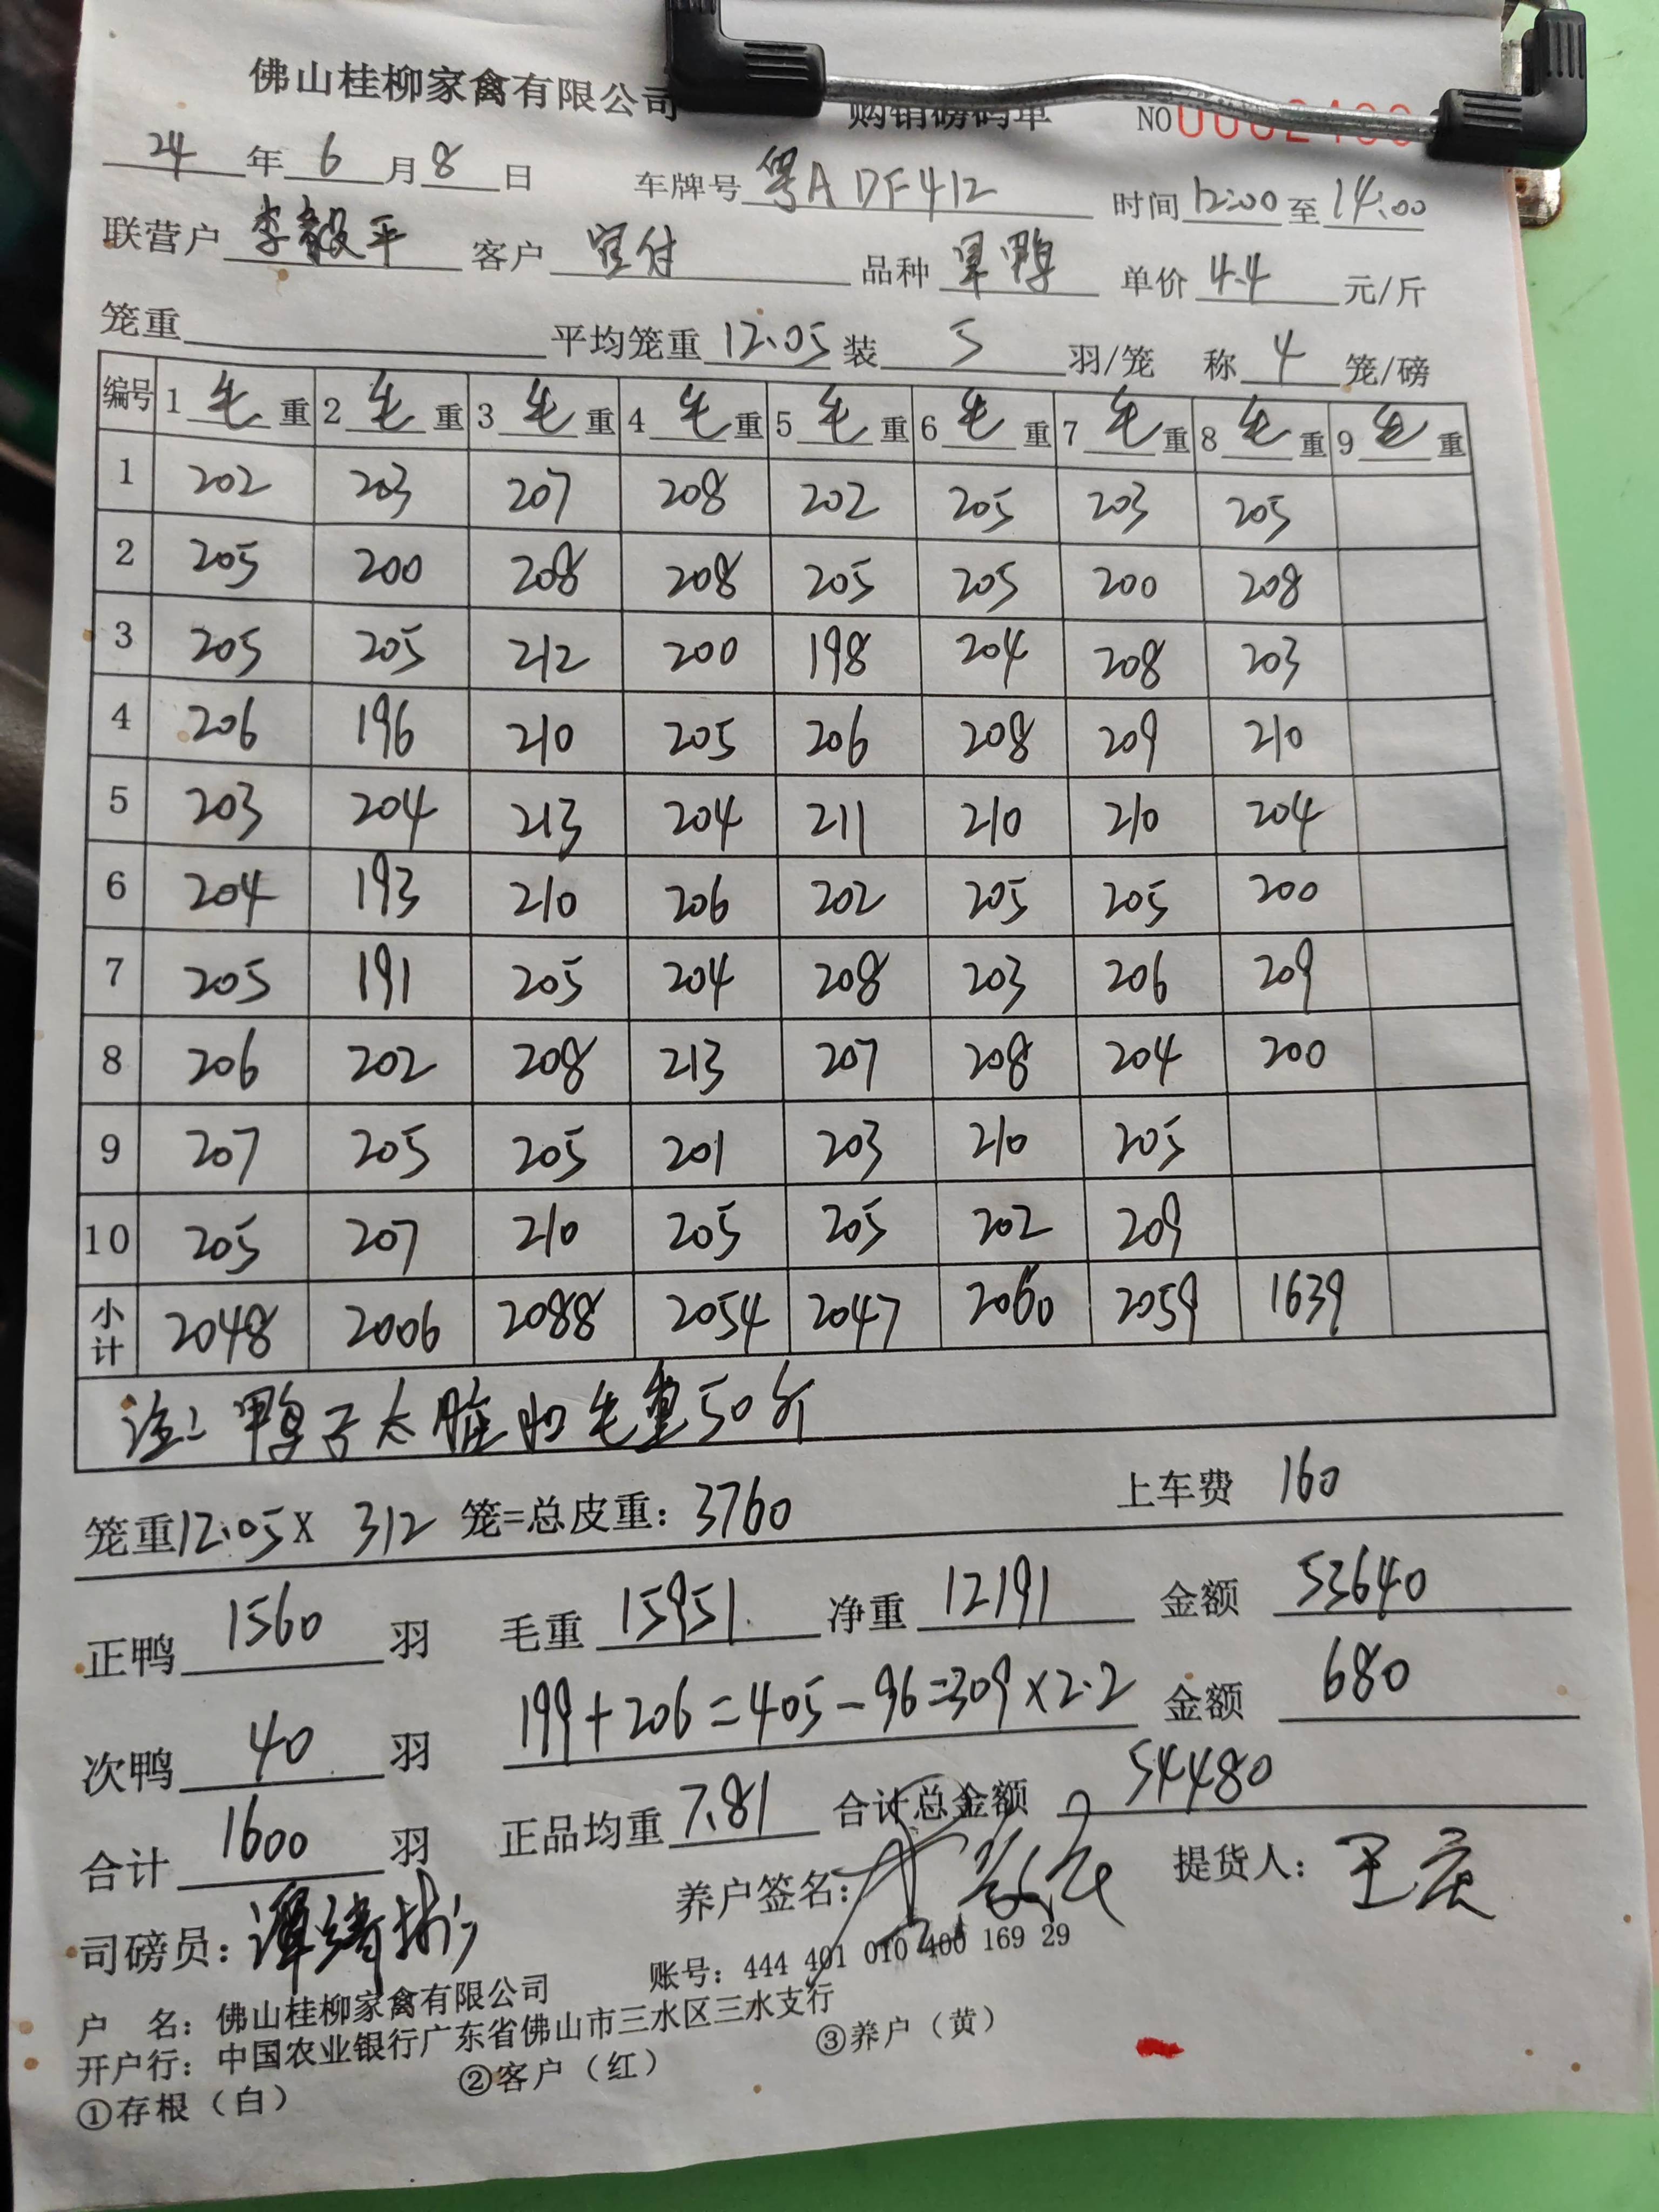 佛山桂柳家禽有限公司 购销磅码单 NO
24年6月8日 车牌号 粤ADF412 时间 12:00至14:00
联营户 李毅平 客户 品种 单价 4.4 元/斤
笼重 平均笼重 12.05 装 5 羽/笼 称 4 笼/磅
编号 1毛重 2毛重 3毛重 4毛重 5毛重 6毛重 7毛重 8毛重 9毛重
1 202 203 207 208 202 205 203 205
2 205 200 208 208 205 205 200 208
3 205 205 212 200 198 204 208 203
4 206 196 210 205 206 208 209 210
5 203 204 213 204 211 210 210 204
6 204 193 210 206 202 205 205 200
7 205 191 205 204 208 203 206 209
8 206 202 208 213 207 208 204 200
9 207 205 205 201 203 210 205
10 205 207 210 205 205 202 209
小计 2048 2006 2088 2054 2047 2060 2059 1639
注: 鸭子太脏扣毛重50斤
笼重12.05X 312 笼=总皮重: 3760 上车费 160
正鸭 1560 羽 毛重 15951 净重 12191 金额 53640
次鸭 40 羽 199+206=405-96=309×2.2 金额 680
合计 1600 羽 正品均重 7.81 合计总金额 54480
司磅员: 养户签名: 提货人: 王庆
户 名: 佛山桂柳家禽有限公司 账号: 444 401 010 400 169 29
开户行: 中国农业银行广东省佛山市三水区三水支行
①存根（白） ②客户（红） ③养户（黄）